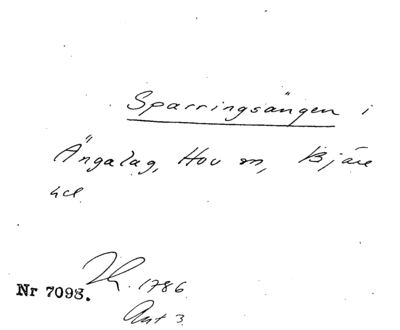 Sparringsängen i
Ängalag, Hov sn, Bjäre
hd.
1786
Nr 7098.
Ant 3